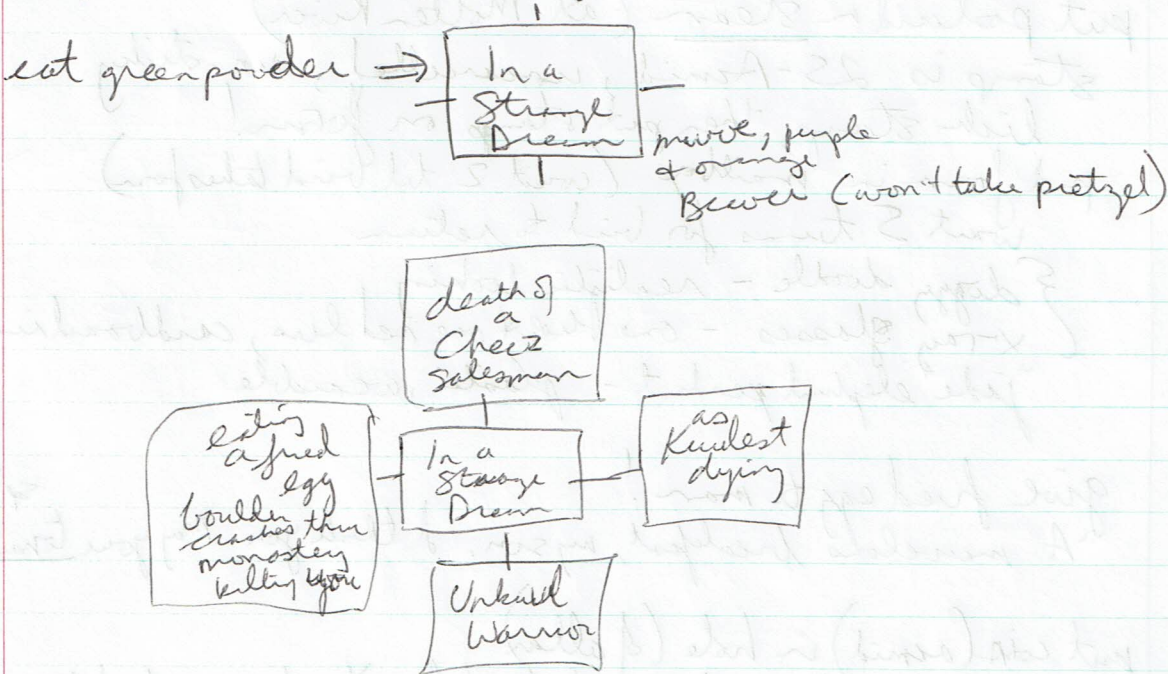 eat green powder ⇒
In a
Strange
Dream
mauve, purple
& orange
Beaver (won't take pretzel)
death of
a
Cheez
salesman
eating
a fried
egg
boulder
crashes thru
monastery
killing you
In a
Strange
Dream
as
dying
Unkuul
Warrior